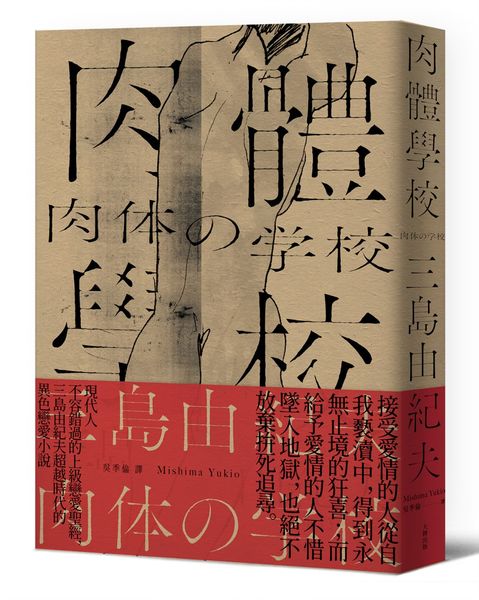 肉體
肉体の学校
學校
三島由紀夫
吳季倫 譯 Mishima Yukio
肉体の学校
接受愛情的人從自
我褻瀆中,得到永
無止境的狂喜;而
給予愛情的人不惜
墜入地獄,也絕不
放棄拼死追尋。
現代人
不容錯過的上級戀愛聖經,
三島由紀夫超越時代的
異色戀愛小說
肉體學校
肉体の学校
三島由紀夫
Mishima Yukio
吳季倫
大牌出版